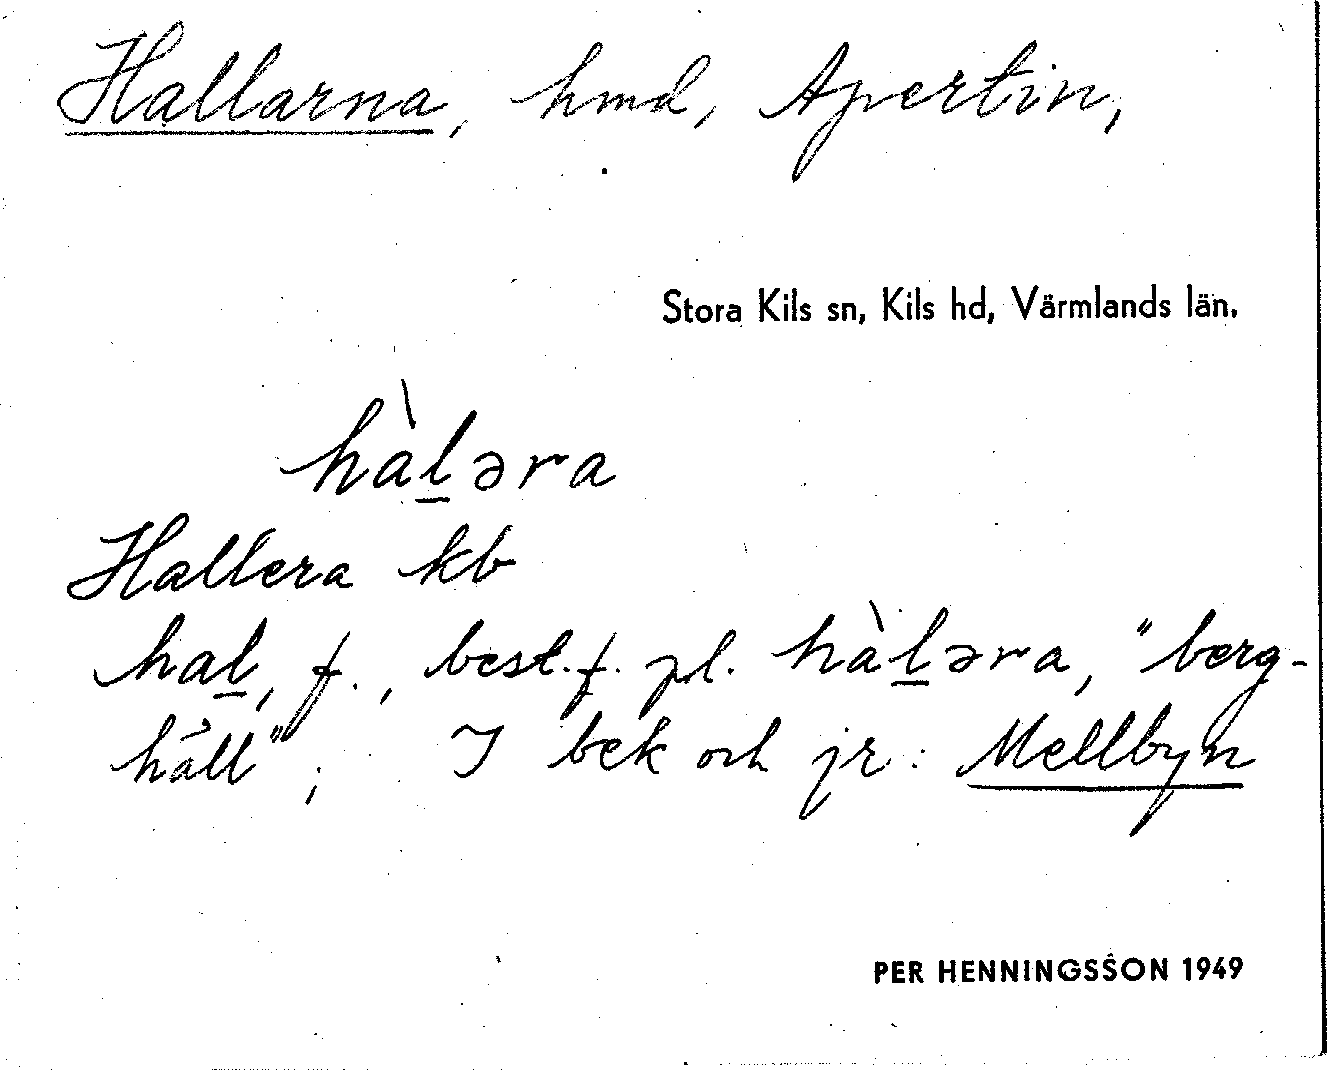 Hallarna, hmd, Apertin,
Stora Kils sn, Kils hd, Värmlands län.
hàl̲əra
Hallera kb
hal̲, f., best. f. pl. hàl̲əra, "berg-
häll"; I bek och jr: Mellbyn
PER HENNINGSSON 1949